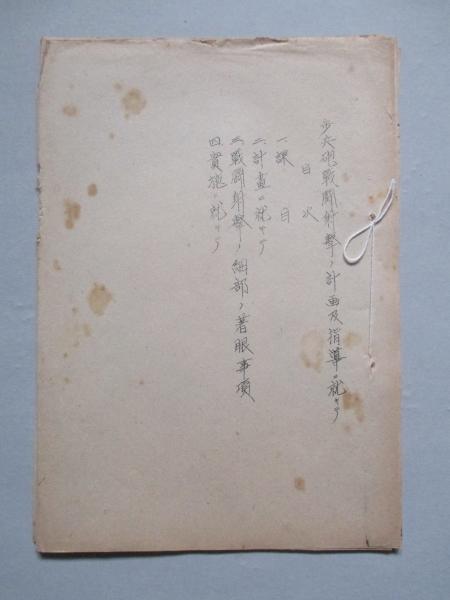 歩兵砲戦闘射撃ノ計画及指導ニ就キテ
目次
一、課目
二、計画ニ就キテ
三、戦闘射撃ノ細部ノ著眼事項
四、実施ニ就キテ